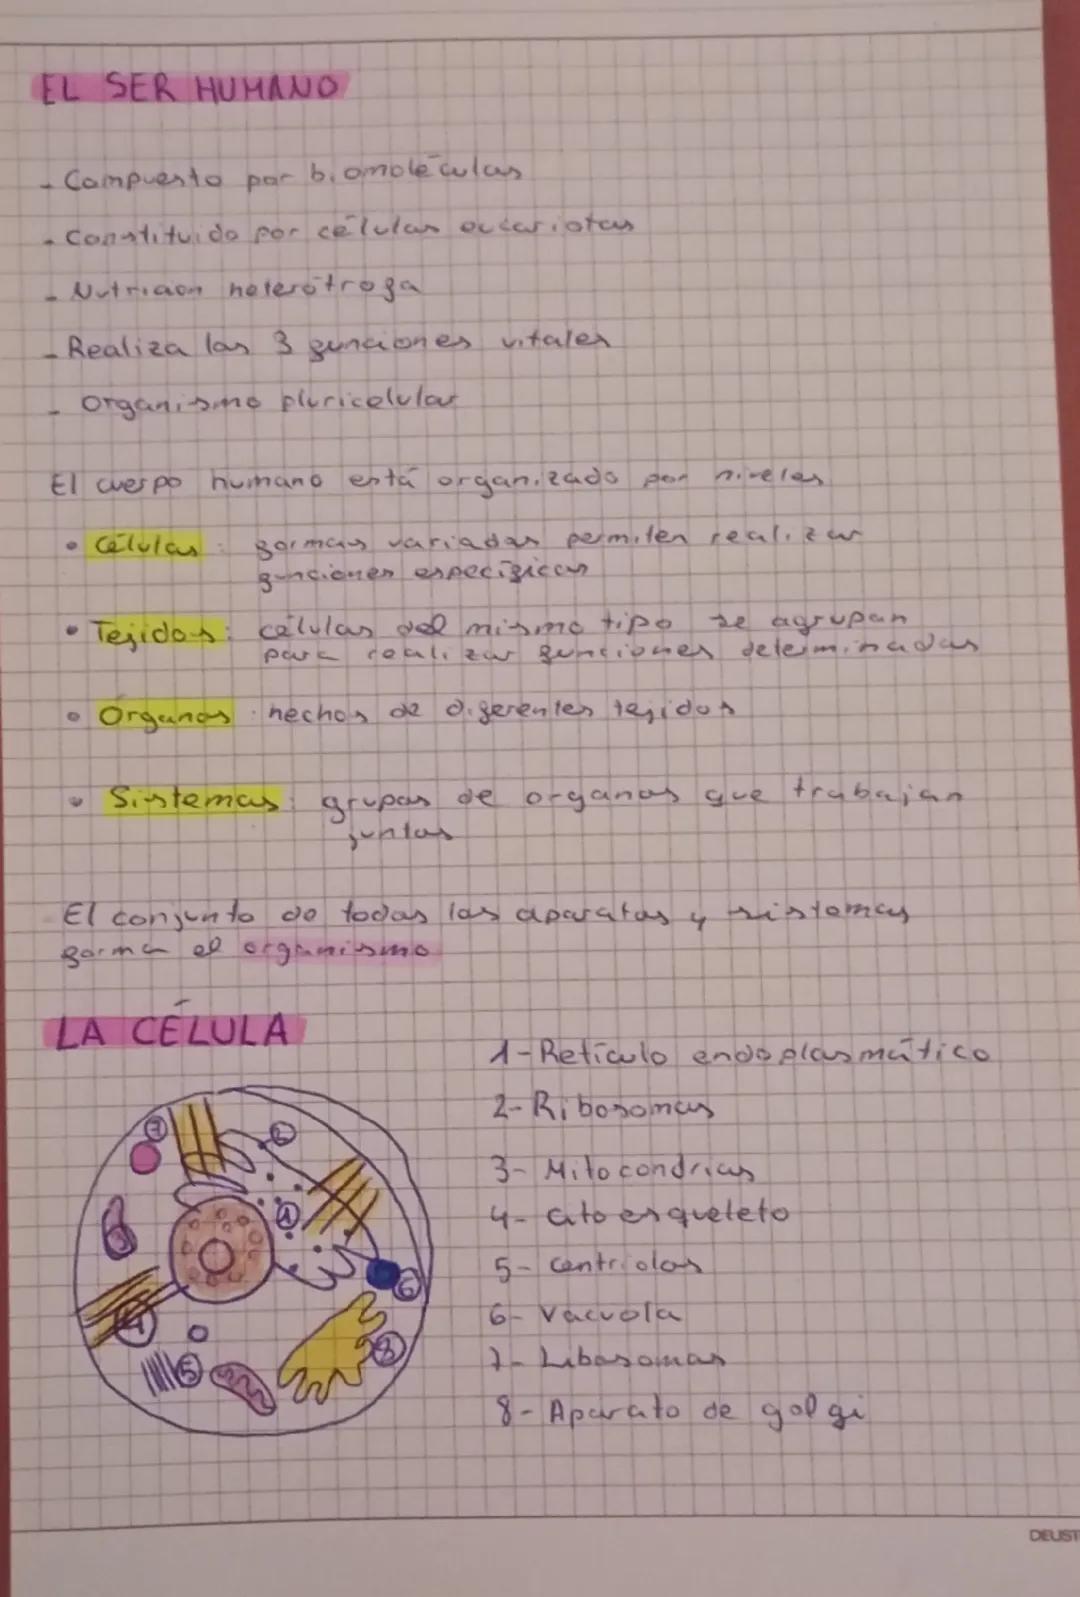 EL SER HUMANO
- Compuesto por biomoléculas
- Constituido por células eucariotas
- Nutrición heterótrofa
- Realiza las 3 funciones vitales
- Organismo pluricelular
El cuerpo humano está organizado por niveles
• Células: formas variadas permiten realizar
funciones especificas
• Tejidos: células del mismo tipo se agrupan
para realizar funciones determinadas
• Órganos: hechos de diferentes tejidos
• Sistemas: grupos de organos que trabajan
juntos
El conjunto de todos los aparatos y sistemas
forma el organismo
LA CÉLULA
1- Retículo endoplasmático
2- Ribosomas
3- Mitocondrias
4- Citoesqueleto
5- Centriolos
6- Vacuola
7- Libosomas
8- Aparato de golgi
7
2
1
3
6
4
8
5
DEUST